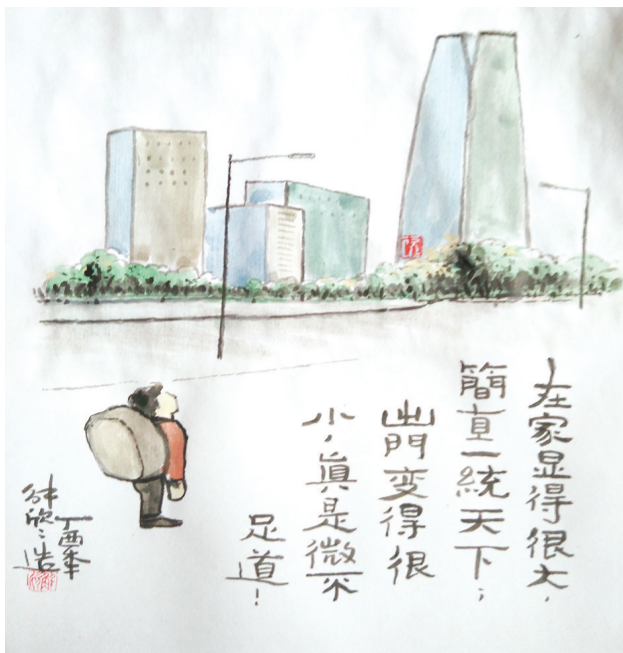 在家显得很大，
簡直一統天下；
出門变得很
小，眞是微不
足道！
丁酉年